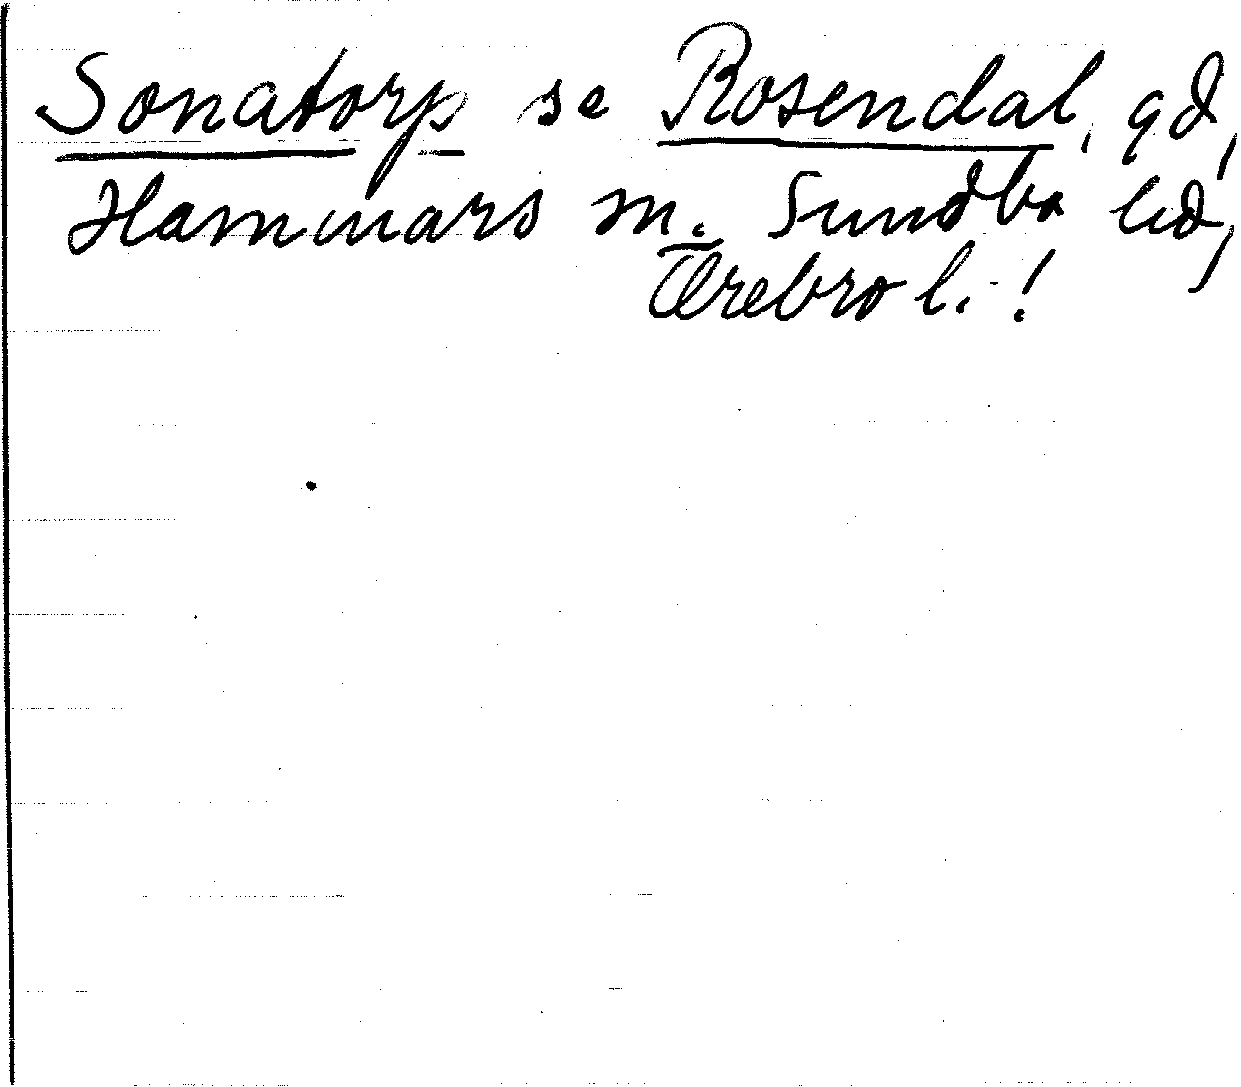 Sonatorp se Rosendal, gd,
Hammars m. Sundbo hd,
Örebro l. !